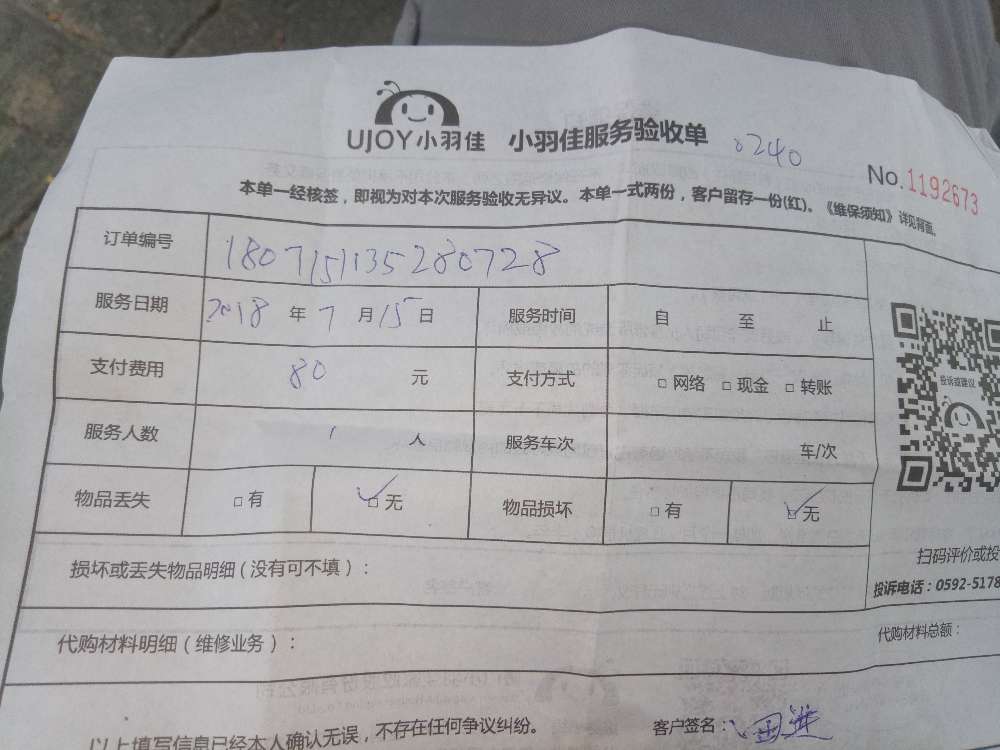 UJOY小羽佳 小羽佳服务验收单 0240
No.1192673
本单一经核签，即视为对本次服务验收无异议。本单一式两份，客户留存一份(红)。《维保须知》详见背面。
订单编号 1807151135280728
服务日期 2018 年 7 月 15 日 服务时间 自 至 止
支付费用 80 元 支付方式 □ 网络 □ 现金 □ 转账
服务人数 1 人 服务车次 车/次
物品丢失 □ 有 ☑ 无 物品损坏 □ 有 ☑ 无
投诉或建议
扫码评价或投
损坏或丢失物品明细（没有可不填）：
投诉电话：0592-5178
代购材料明细（维修业务）：
代购材料总额：
以上填写信息已经本人确认无误，不存在任何争议纠纷。 客户签名：